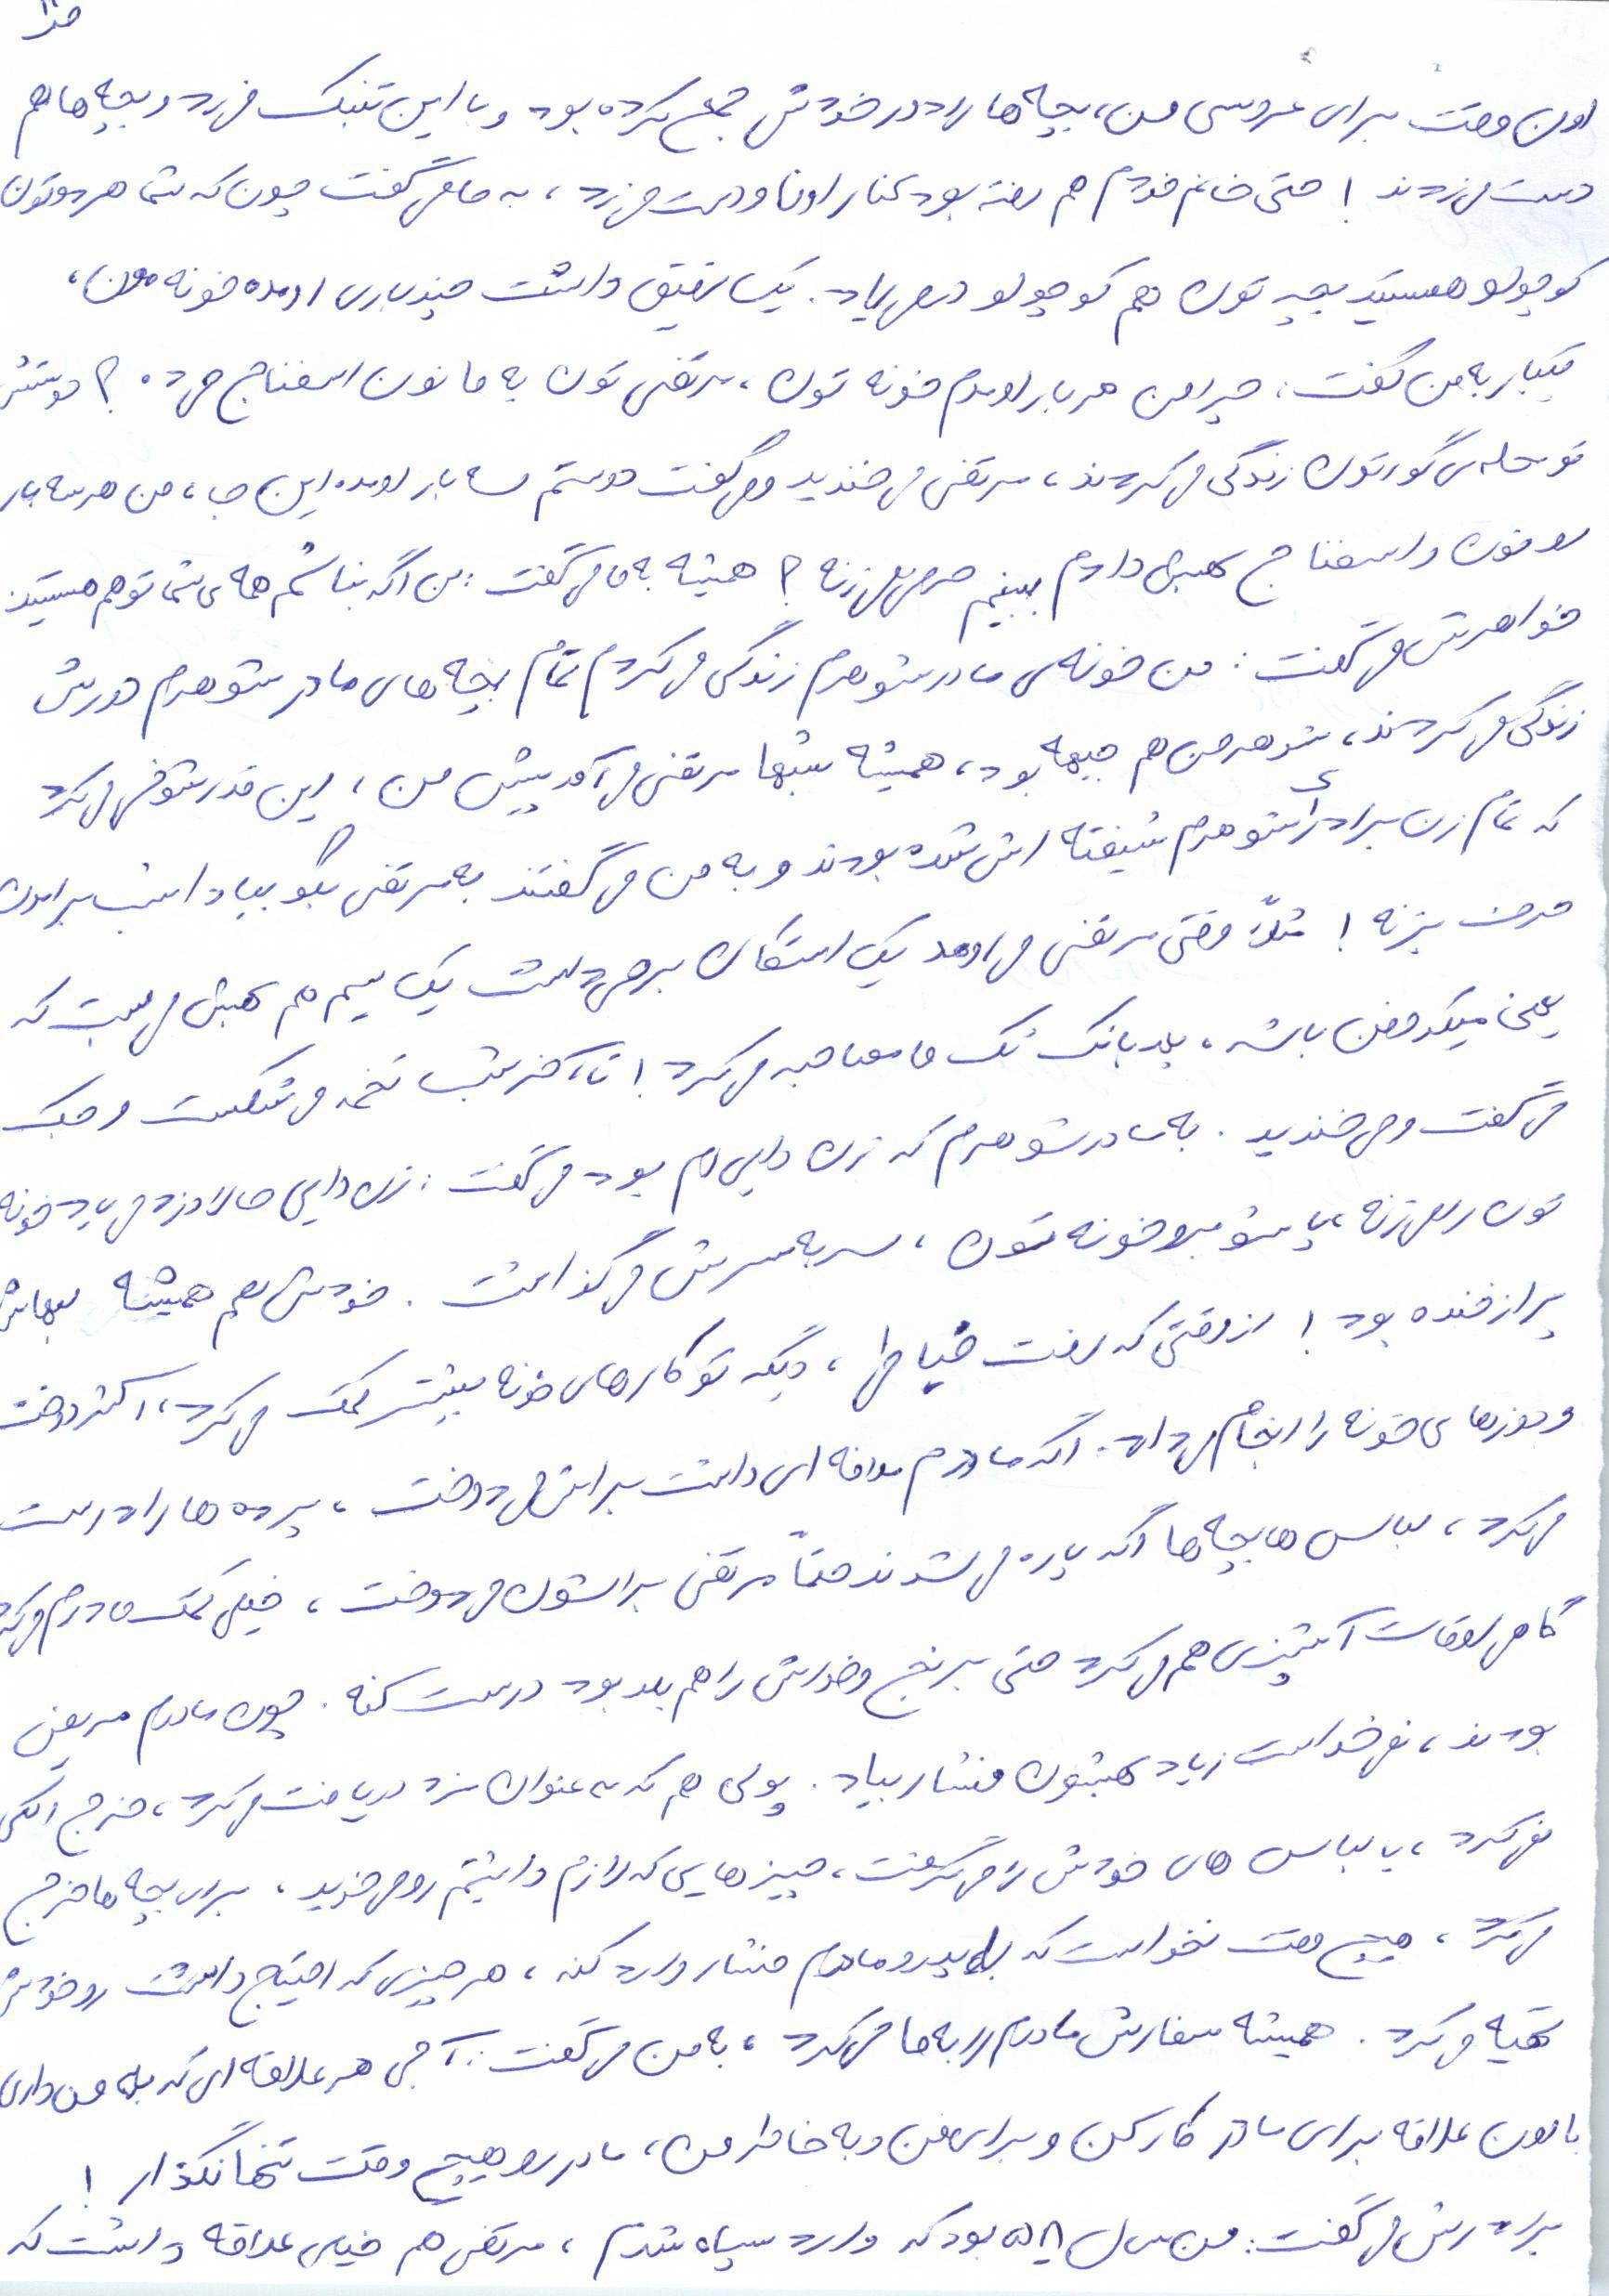 اون وقت برای عروسی من، بچه ها را دور خودش جمع کرده بود و با این تنبک می زد و بچه ها هم
دست می زدند ! حتی خانم خودم هم رفته بود کنار اونا و دست می زد، به ما می گفت چون که شما هر دوتون
کوچولو هستید بچه تون هم کوچولو در می یاد. یک رفیق داشت چند باری اومده خونه مون،
یکبار به من گفت: چرا من هر بار اومدم خونه تون، مرتضی تون به ما نون اسفناج می ده ؟ دوستش
تو محله ی گورتون زندگی می کردند، مرتضی می خندید و می گفت دوستم سه بار اومده این جا، من هر سه بار
رو نون و اسفناج بهش دادم ببینم حرص می زنه ؟ همیشه به ما می گفت: من اگه نباشم همه ی شما تو هم هستید
خواهرش می گفت: من خونه ی مادرشوهرم زندگی می کردم تمام بچه های مادر شوهرم دورش
زندگی می کردند، شوهر من هم جبهه بود، همیشه شبها مرتضی می آمد پیش من، این قدر شوخی می کرد
که تمام زن برادرای شوهرم شیفته اش شده بودند و به من می گفتند به مرتضی بگو بیاد امشب برامون
حرف بزنه ! مثلاً وقتی مرتضی می اومد یک استکان برمی داشت یک سیم هم بهش می بست که
یعنی میکروفن باشه، بعد با تک تک ما مصاحبه می کرد ! تا آخر شب تخمه می شکست و جک
می گفت و می خندید. به مادرشوهرم که زن دایی ام بود می گفت: زن دایی حالا دزد می یاد خونه
تون رو می زنه پاشو برو خونه تون، سر به سرش می گذاشت. خودش هم همیشه لبهاش
پر از خنده بود ! از وقتی که رفت خیاطی، دیگه تو کارهای خونه بیشتر کمک می کرد، اکثر دوخت
و دوزهای خونه را انجام می داد. اگه مادرم ملافه ای داشت براش می دوخت، پرده ها را درست
می کرد، لباس ها بچه ها اگه پاره می شدند حتماً مرتضی براشون می دوخت، خیلی کمک مادرم می کرد
گاهی اوقات آشپزی هم می کرد حتی برنج و خورش را هم بلد بود درست کنه. چون مادرم مریض
بودند، نمی خواست زیاد بهشون فشار بیاد. پولی هم که به عنوان مزد دریافت می کرد، خرج الکی
نمی کرد، یا لباس های خودش را می گرفت، چیزهایی که لازم داشتیم رو می خرید، برای بچه ها خرج
می کرد، هیچ وقت نخواست که به پدر و مادرم فشار وارد کنه، هر چیزی که احتیاج داشت رو خودش
تهیه می کرد. همیشه سفارش مادرم رو به ما می کرد، به من می گفت: آجی هر علاقه ای که به من داری
با اون علاقه برای مادر کار کن و برای من و به خاطر من، مادر رو هیچ وقت تنها نگذار !
برادرش می گفت: من سال بود که وارد سپاه شدم، مرتضی هم خیلی علاقه داشت که